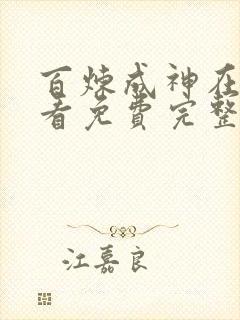 百炼成神在
看免费完整
江嘉良